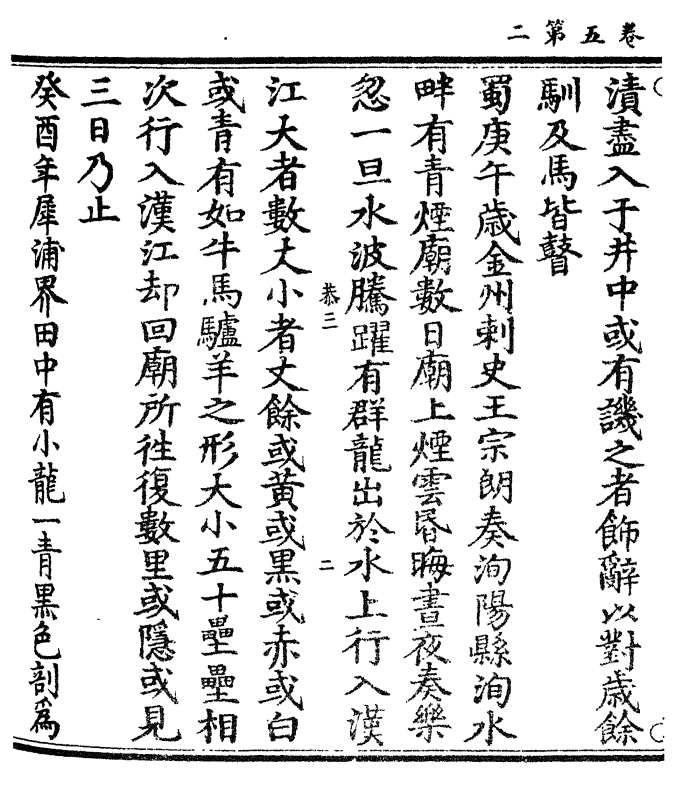 卷五第二
漬盡入于井中或有譏之者飾辭以對歲餘
馴及馬皆瞽
蜀庚午歲金州刺史王宗朗奏洵陽縣洵水
畔有青煙廟數日廟上煙雲昏晦晝夜奏樂
忽一旦水波騰躍有群龍出於水上行入漢
恭三
二
江大者數丈小者丈餘或黃或黑或赤或白
或青有如牛馬驢羊之形大小五十壘壘相
次行入漢江却回廟所往復數里或隱或見
三日乃止
癸酉年犀浦界田中有小龍一青黑色剖為